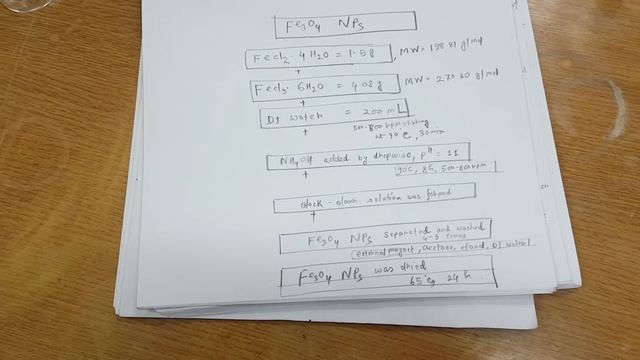 Fe3O4 NPs
FeCl2 4H2O = 1.5g, MW = 198.81 g/mol
+
FeCl3. 6H2O = 4.08g MW = 270.30 g/mol
+
DI water = 200 mL
+ 500-800 rpm, stirring
at 90 c, 30 min
NH4OH added by dropwise, pH = 11
+ 90c, 8h, 500-800 rpm
Black - down solution was formed
+
Fe3O4 NPs separated and washed
4-5 times
external magnet, acetone, etanol, DI water
Fe3O4 NPs was dried
65°c, 24 h.